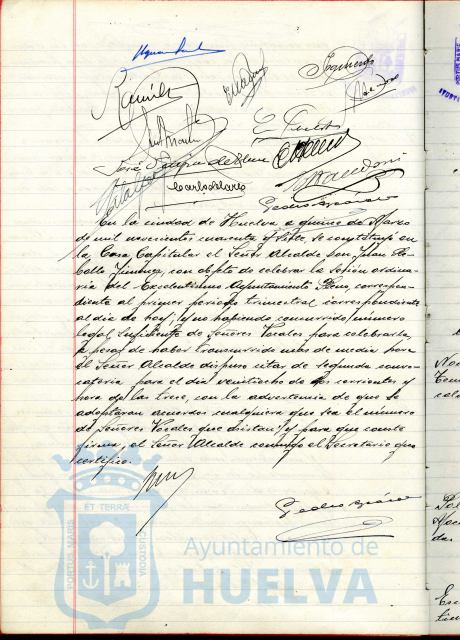 José
Carlos
Pedro
En la ciudad de Huelva a quince de Marzo
de mil novecientos cuarenta y siete, se constituyó en
la Casa Capitular el Señor Alcalde Don Juan Re-
bollo Jiménez, con objeto de celebrar la sesión ordina-
ria del Excelentísimo Ayuntamiento Pleno, correspon-
diente al primer periodo trimestral correspondiente
al día de hoy; y no habiendo concurrido número
legal suficiente de Señores Vocales para celebrarla,
a pesar de haber transcurrido más de media hora
el Señor Alcalde dispuso citar de segunda convo-
catoria para el día veintiocho de los corrientes y
hora de las trece, con la advertencia de que se
adoptarán acuerdos cualquiera que sea el número
de Señores Vocales que asistan; y para que conste
firma, el Señor Alcalde conmigo el Secretario que
certifico.
Pedro
PORTUS MARIS ET TERRAE CUSTODIA
Ayuntamiento de
HUELVA